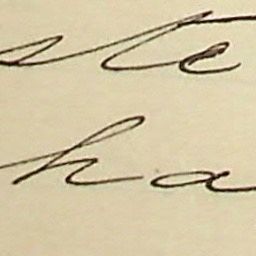 ste
ha